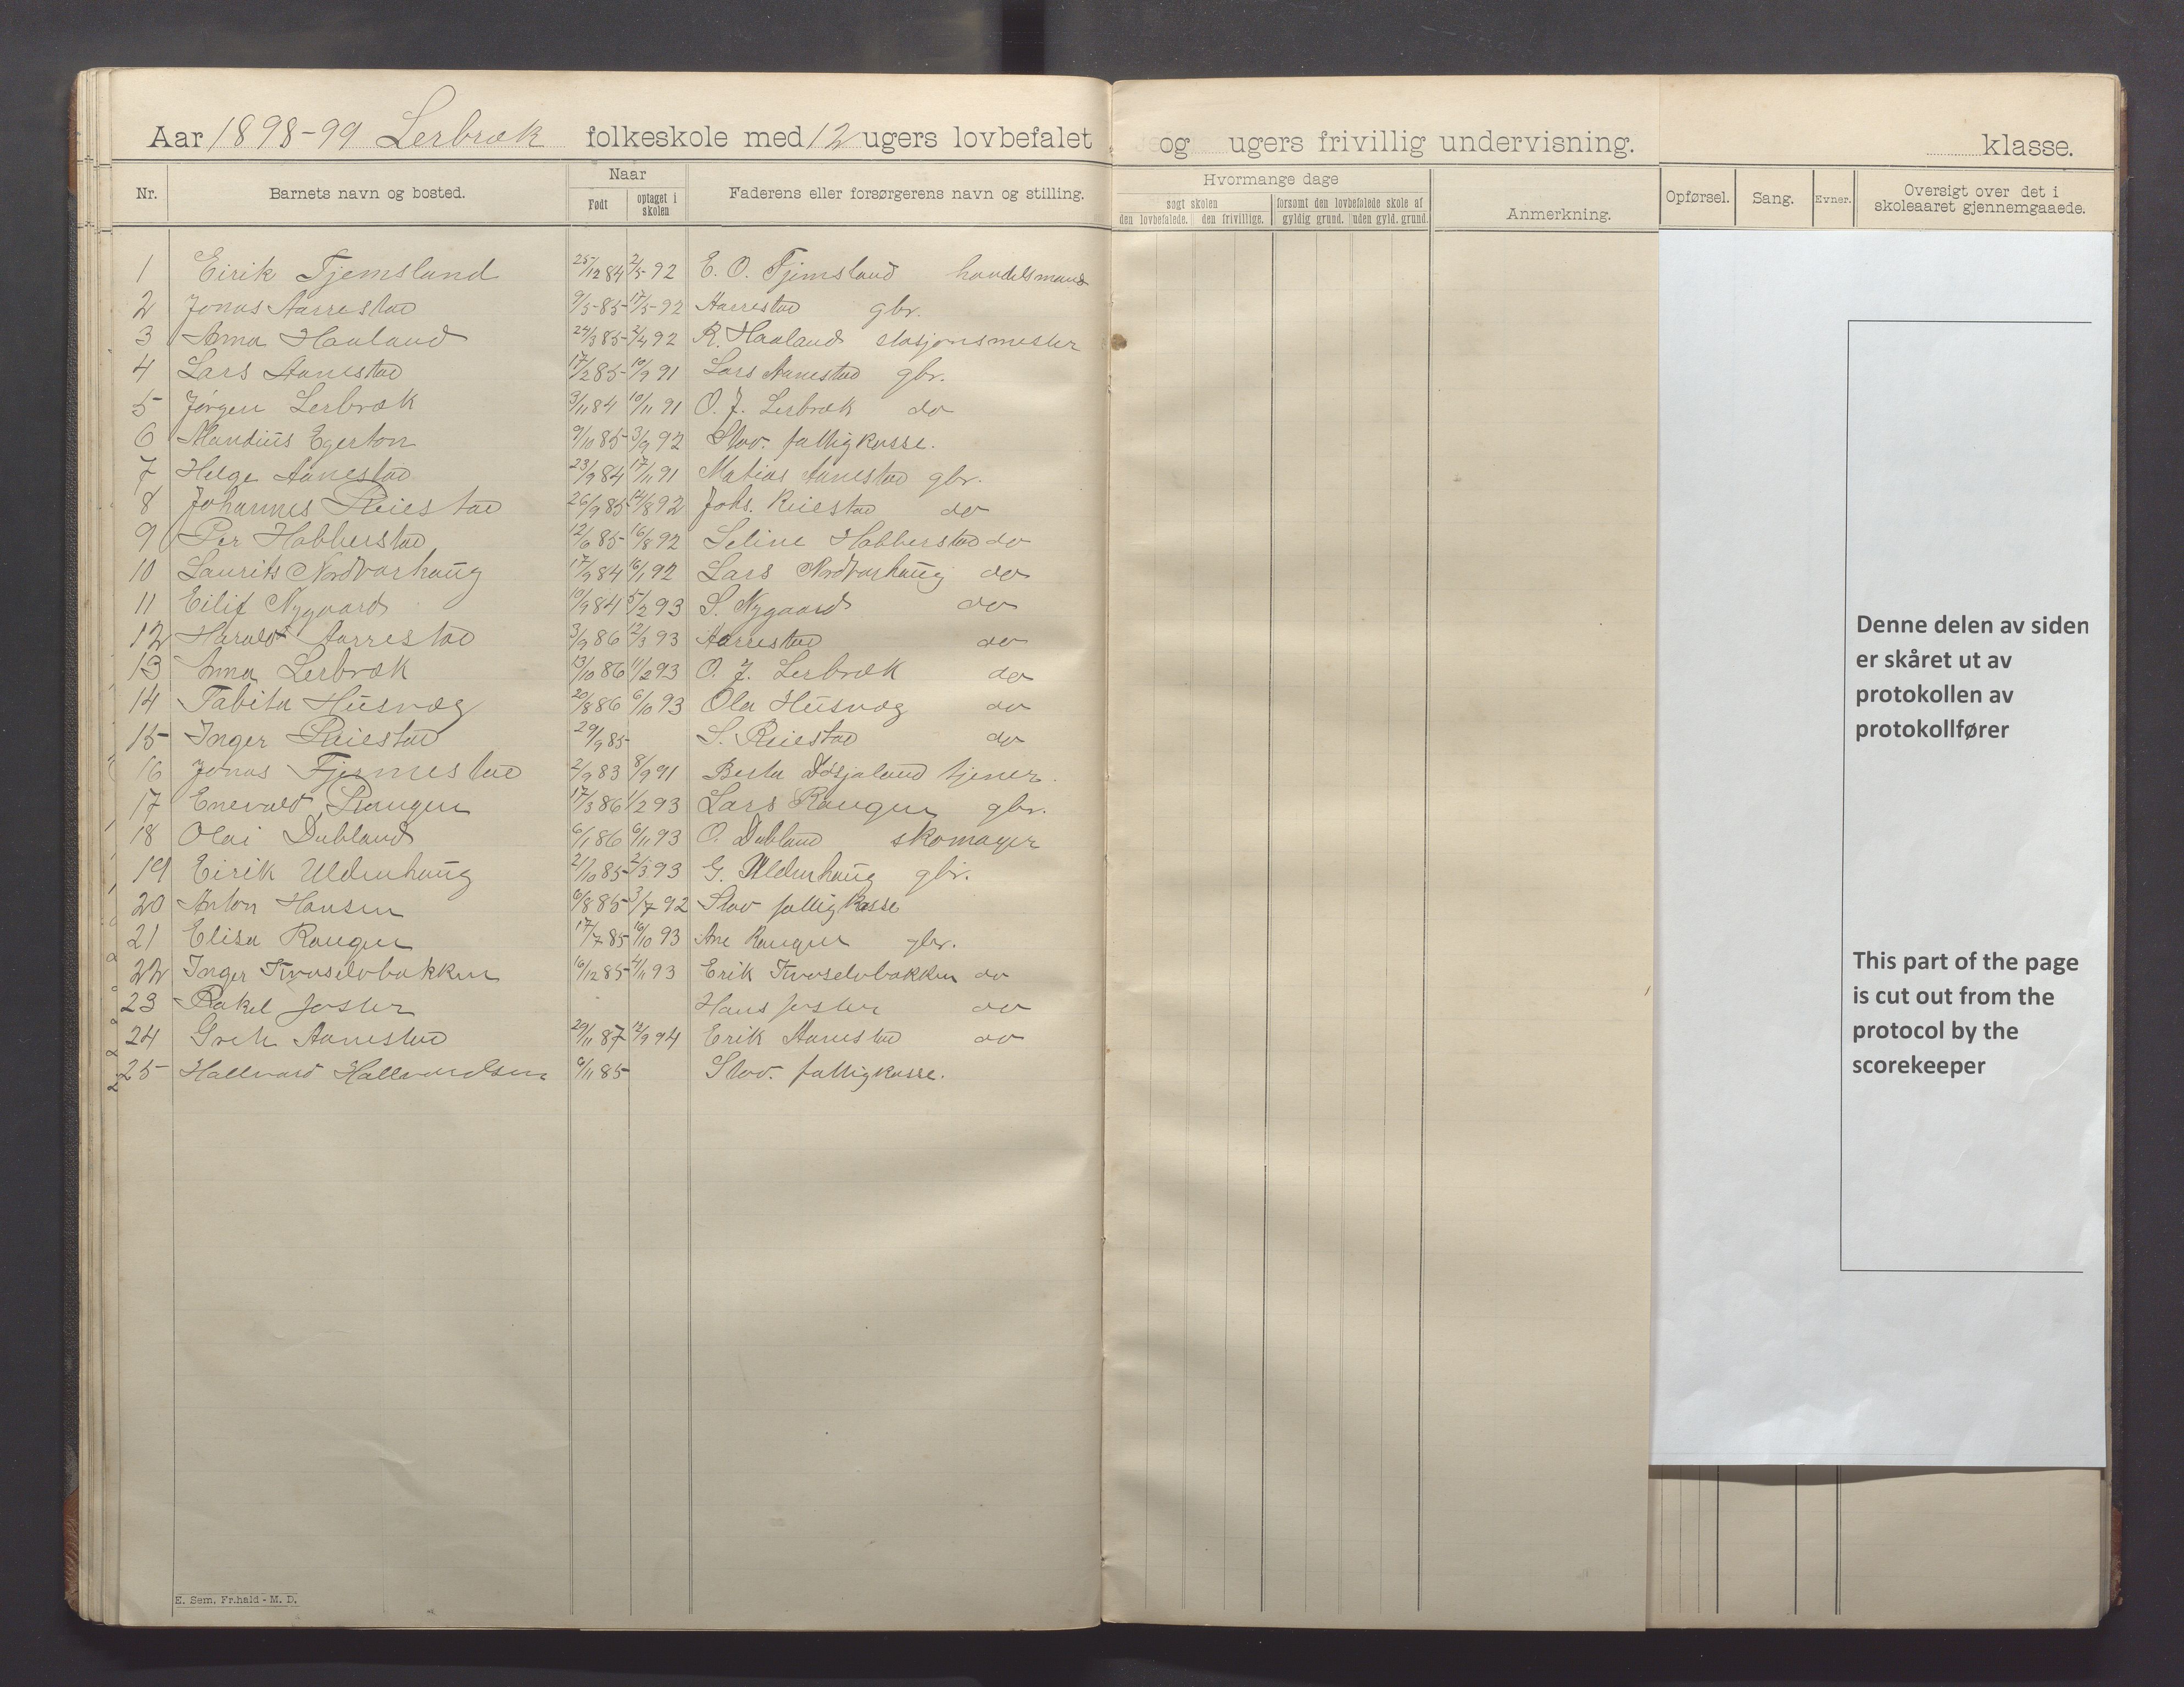 Aar 1898-99 Lerbræk folkeskole med 12 ugers lovbefalet og ugers frivillig undervisning. klasse.
Nr. Barnets navn og bosted. Naar Født optaget i skolen Faderens eller forsørgerens navn og stilling. Hvormange dage søgt skolen den lovbefalede. den frivillige. forsømt den lovbefalede skole af gyldig grund. uden gyld. grund. Anmerkning. Opførsel. Sang. Evner. Oversigt over det i skoleaaret gjennemgaaede.
1 Eirik Tjemsland 25/12 84 2/5-92 E. O. Tjemsland handelsmand
2 Jonas Aarrestad 9/5-85 17/5-92 Aarrestad gbr.
3 Anna Haaland 24/3 85 2/4 92 R. Haaland stasjonsmester
4 Lars Aanestad 17/2 85 10/9 91 Lars Aanestad gbr.
5 Jørgen Lerbræk 3/11 84 10/11 91 O. J. Lerbræk do
6 Mandius Egerton 9/10 85 3/9 92 Stav. fattigkasse.
7 Helge Aanestad 23/9 84 17/11 91 Matias Aanestad gbr.
8 Johannes Reiestad 26/9 85 14/8 92 Johs. Reiestad do
9 Per Hobberstad 12/6 85 16/8 92 Seline Hobberstad do
10 Laurits Nordvarhaug 17/9 84 16/1 92 Lars Nordvarhaug do
11 Eilif Nygaard 10/9 84 5/2 93 S. Nygaard do
12 Harald Aarrestad 3/9 86 12/3 93 Aarrestad do
13 Anna Lerbræk 13/10 86 11/2 93 O. J. Lerbræk do
14 Tabita Husvæg 20/8 86 6/10 93 Ola Husvæg do
15 Inger Reiestad 29/9 85 S. Reiestad do
16 Jonas Fjermestad 2/9 83 8/9 91 Berta Døsjaland tjener.
17 Enevald Raugen 17/3 86 1/2 93 Lars Raugen gbr.
18 Olai Dubland 6/1 86 6/11 93 O. Dubland skomager
19 Eirik Uldenhaug 21/10 85 2/3 93 G. Uldenhaug gbr.
20 Anton Hansen 6/8 85 3/7 92 Stav fattigkasse
21 Elisa Raugen 17/7 85 16/10 93 Ane Raugen gbr.
22 Inger Tvoselvbakken 16/12 85 4/11 93 Erik Tvoselvbakken do
23 Rakel Joster Hans Joster do
24 Grete Aanestad 29/11 87 12/9 94 Erik Aanestad do
25 Hallvard Hallvardsen 9/11 85 Stav. fattigkasse.
E. Sem, Fr.hald - M. D.
Denne delen av siden
er skåret ut av
protokollen av
protokollfører
This part of the page
is cut out from the
protocol by the
scorekeeper